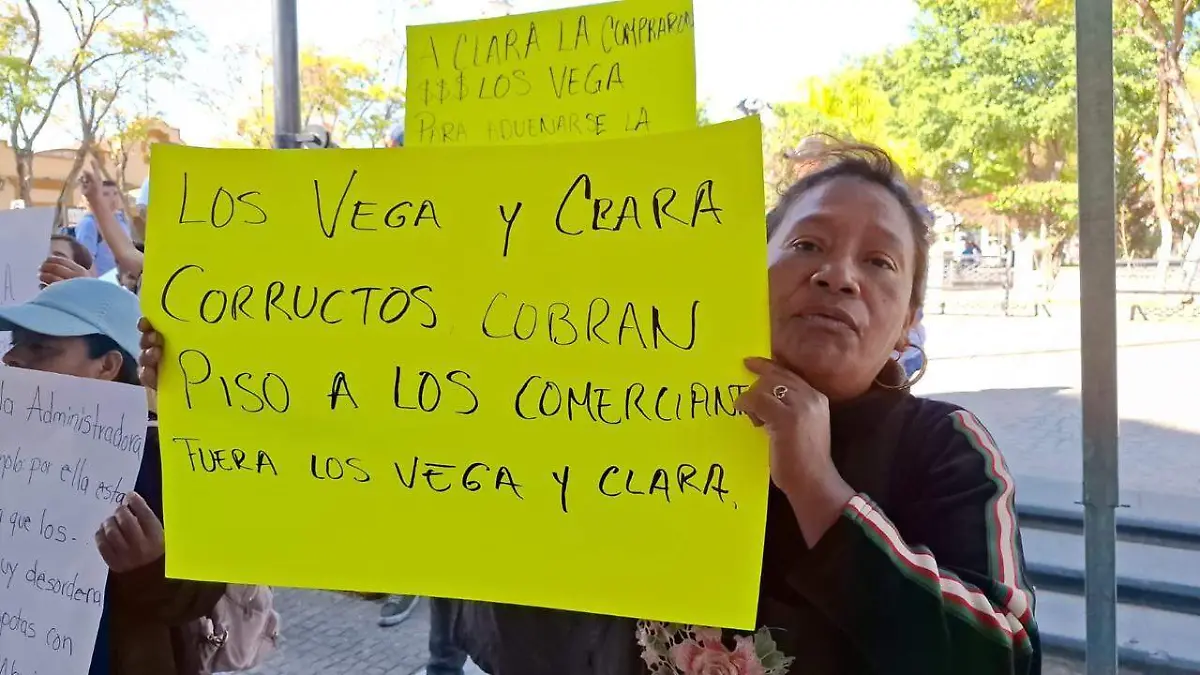 A CLARA LA COMPRARON
$$$ LOS VEGA
PARA ADUEÑARSE LA
LOS VEGA Y CLARA
CORRUCTOS. COBRAN
PISO A LOS COMERCIANT
FUERA LOS VEGA Y CLARA.
la Administradora
por ella esta
que los.
desordena
con